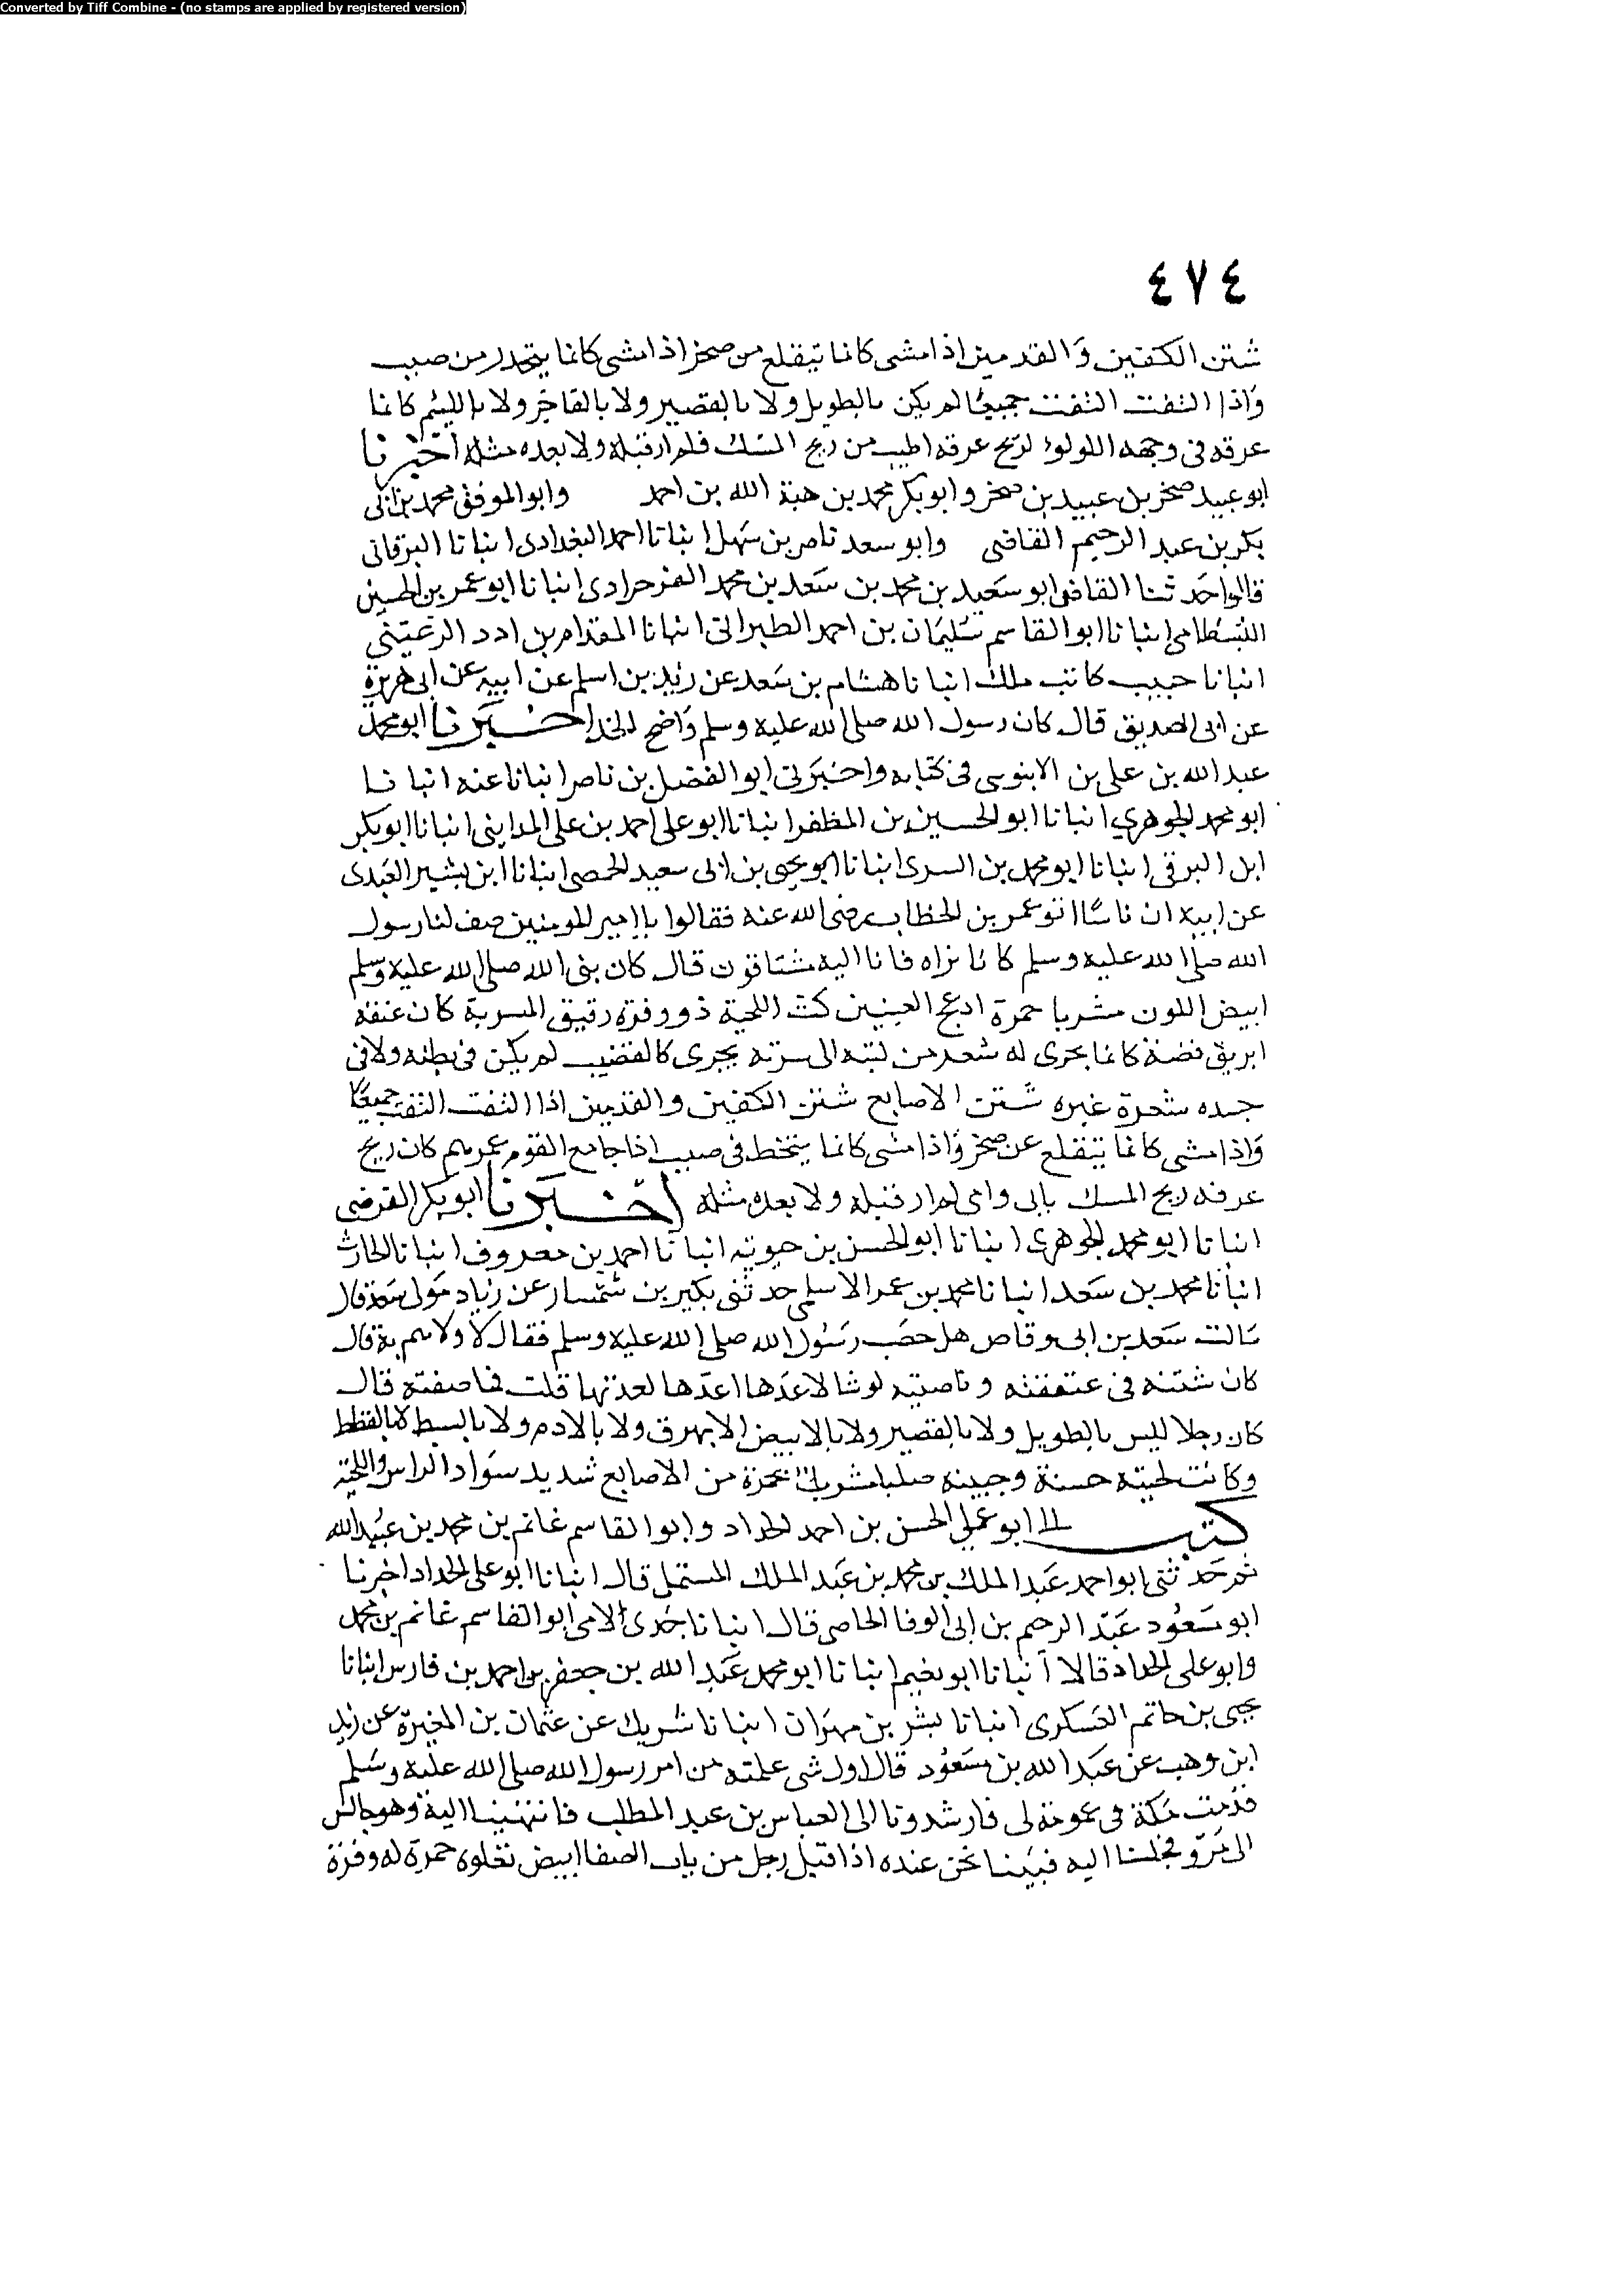 Converted by Tiff Combine - (no stamps are applied by registered version)
٤٧٤
شثن الكفين وَالقدمين اذا مشى كانما يتقلع من صخر اذا مشى كانما يتحدر من صبب
وَاذا التفت التفت جميعًا لم يكن بالطويل ولا بالقصير ولا بالفاجر ولا باللييم كانما
عرقه فى وجهه اللولوُ لريح عرقه اطيب من ريح المسك فلم ار قبله ولا بعده مثله اخبرنا
ابو عبيد صخر بن عبيد بن صخر وابو بكر محمد بن هبة الله بن احمد وابو الموفق محمد بن ابى
بكر بن عبد الرحيم القاضى وابو سعد ناصر بن سهل انبانا احمد البغدادى انبانا البرقانى
قالوا حَدثنا القاضى ابو سَعيد بن محمد بن سَعد بن محمد الفرحرادى انبانا ابو عمر بن الحسين
البسطامى انبانا ابو القاسم سُليمَان بن احمد الطبرانى انبانا المقدام بن ادد الرعَينى
انبانا حبيب كاتب ملك انبانا هشام بن سَعد عن زيد بن اسلم عن ابيه عن ابى هريرة
عن ابى الصديق قال كان رسول الله صلى الله عليه وسلم وَاضح الخد اخبرنا ابو محمد
عبد الله بن على بن الابنوسى فى كتابه واخبرنى ابو الفضل بن ناصر انبانا عنه انبانا
ابو محمد الجوهري انبانا ابو الحسين بن المظفر انبانا ابو على احمد بن على المداينى انبانا ابو بكر
ابن البرقى انبانا ابو محمد بن السرى انبانا ابو يحيى بن ابى سعيد الحمصى انبانا ابن بشير العَبدى
عن ابيه ان ناسًا اتو عمر بن الخطاب رضى الله عنه فقالوا يا امير المومنين صف لنا رسول
الله صلى الله عليه وسلم كانا نراه فانا اليه مشتاقون قال كان نبى الله صلى الله عليه وسلم
ابيض اللون مشربا حمرة ادعج العينين كث اللحية ذو وفرة رقيق المسربة كان عنقه
ابريق فضة كانما يجرى له شعر من لبته الى سرته يجرى كالقضيب لم يكن فى بطنه ولا فى
جسده شعرة غيره شثن الاصابع شثن الكفين والقدمين اذا التفت التفت جميعًا
وَاذا مشى كانما يتقلع عن صخر وَاذا مشى كانما ينحط فى صبب اذا جامع القوم عمرهم كان ريح
عرقه ريح المسك بابى وامى لم ار قبله ولا بعده مثله اخبرنا ابو بكر الفرضى
انبانا ابو محمد الجوهرى انبانا ابو الحسن بن حيويه انبانا احمد بن معروف انبانا الحارث
انبانا محمد بن سَعد انبانا محمد بن عمر الاسلمى حدثنى بكير بن مسمار عن زياد مَولى سَعد قال
سَالت سَعد بن ابى وقاص هل خضب رَسُول الله صلى الله عليه وسلم فقال لا ولا هم به قال
كان شيبه فى عنفقته وناصيته لو شا لاعَدها اعدّها لعددتها قلت فما صفته قال
كان رجلا ليس بالطويل ولا بالقصير ولا بالابيض الابهرق ولا بالادم ولا بالبسط لا بالقطط
وكانت لحيته حسنة وجبينه صلبا مشربا بحمرة من الاصابع شديد سَواد الراس واللحية
كتب الى ابو على الحسن بن احمد الحداد وابو القاسم غانم بن محمد بن عبيد الله
ثم حَدثنى ابو احمد عَبد الملك بن محمد بن عَبد الملك المستملى قال انبانا ابو على الحداد اخبرنا
ابو سَعُود عَبد الرحيم بن ابى الوفا الحاصى قال انبانا جَدى لامى ابو القاسم غانم بن محمد
وابو على الحداد قالا انبانا ابو نعيم انبانا ابو محمد عَبد الله بن جعفر بن احمد بن فارس انبانا
يحيى بن حاتم العَسكرى انبانا بشر بن مهرَان انبانا شريك عن عثمان بن المغيرة عن زيد
ابن وهب عن عَبد الله بن مسَعُود قال اول شى علمته من امر رسول الله صلى الله عليه وسَلم
قدمت مَكة فى عمومة لى فارشدونا الى العباس بن عبد المطلب فانتهينا الية وهو جالس
الى فجلسنا اليه فبَينا نحن عنده اذا قبل رجل من باب الصفا ابيض تعلوه حمرة له وفرة